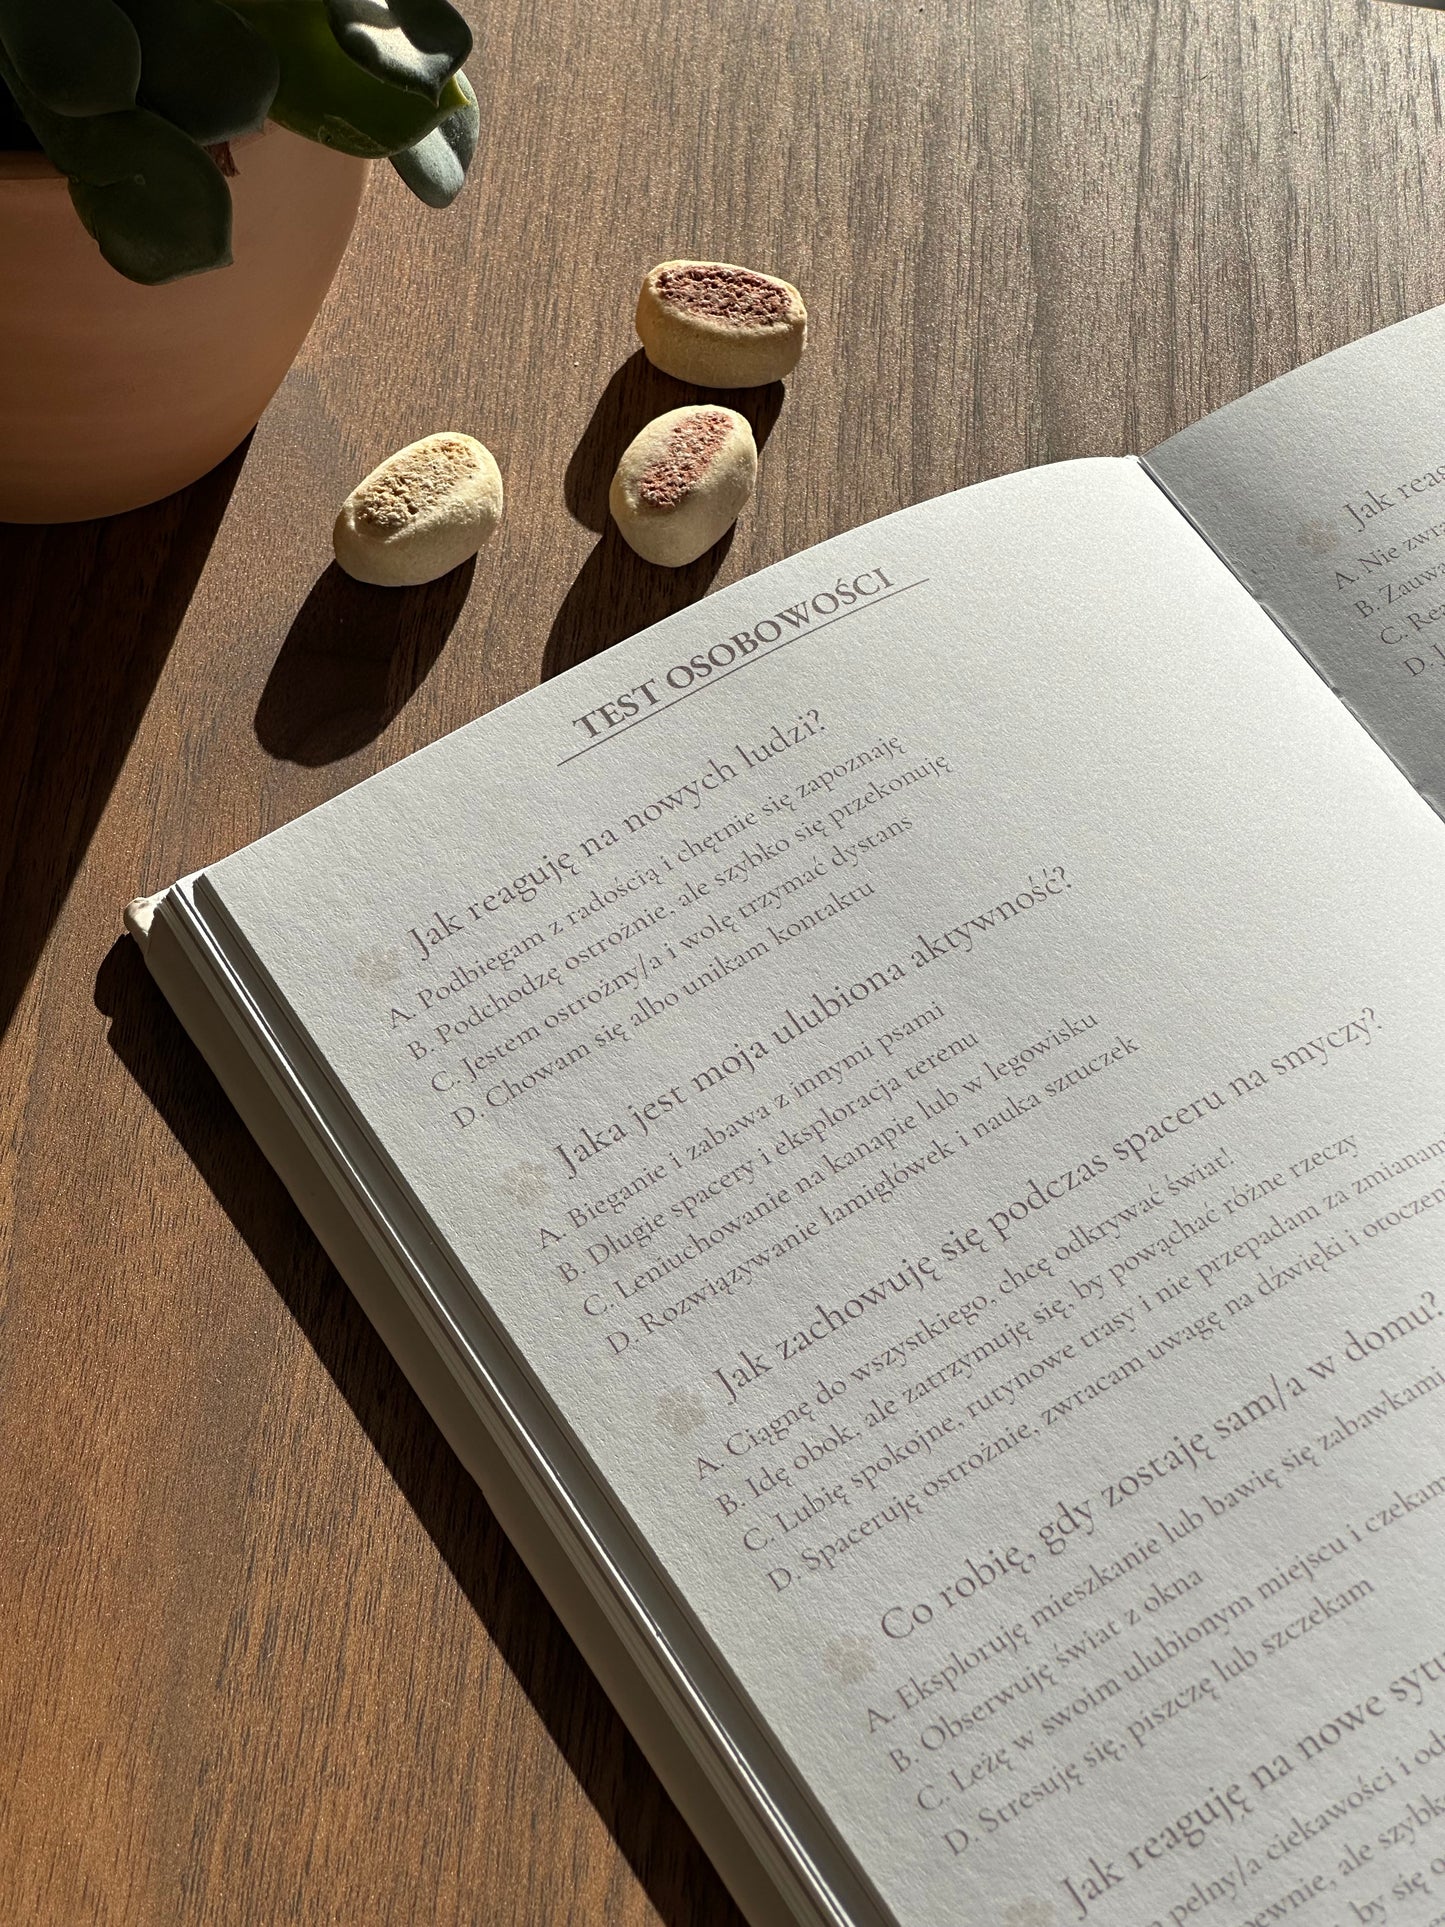 TEST OSOBOWOŚCI
Jak reaguję na nowych ludzi?
A. Podbiegam z radością i chętnie się zapoznaję
B. Podchodzę ostrożnie, ale szybko się przekonuję
C. Jestem ostrożny/a i wolę trzymać dystans
D. Chowam się albo unikam kontaktu
Jaka jest moja ulubiona aktywność?
A. Bieganie i zabawa z innymi psami
B. Długie spacery i eksploracja terenu
C. Leniuchowanie na kanapie lub w legowisku
D. Rozwiązywanie łamigłówek i nauka sztuczek
Jak zachowuję się podczas spaceru na smyczy?
A. Ciągnę do wszystkiego, chcę odkrywać świat!
B. Idę obok, ale zatrzymuję się, by powąchać różne rzeczy
C. Lubię spokojne, rutynowe trasy i nie przepadam za zmianam
D. Spaceruję ostrożnie, zwracam uwagę na dźwięki i otoczen
Co robię, gdy zostaję sam/a w domu?
A. Eksploruję mieszkanie lub bawię się zabawkami
B. Obserwuję świat z okna
C. Leżę w swoim ulubionym miejscu i czekam
D. Stresuję się, piszczę lub szczekam
Jak reaguję na nowe sytu
pełny/a ciekawości i od
ale szybk
by się o
Jak reag
A. Nie zwra
B. Zauwa
C. Rea
D. J